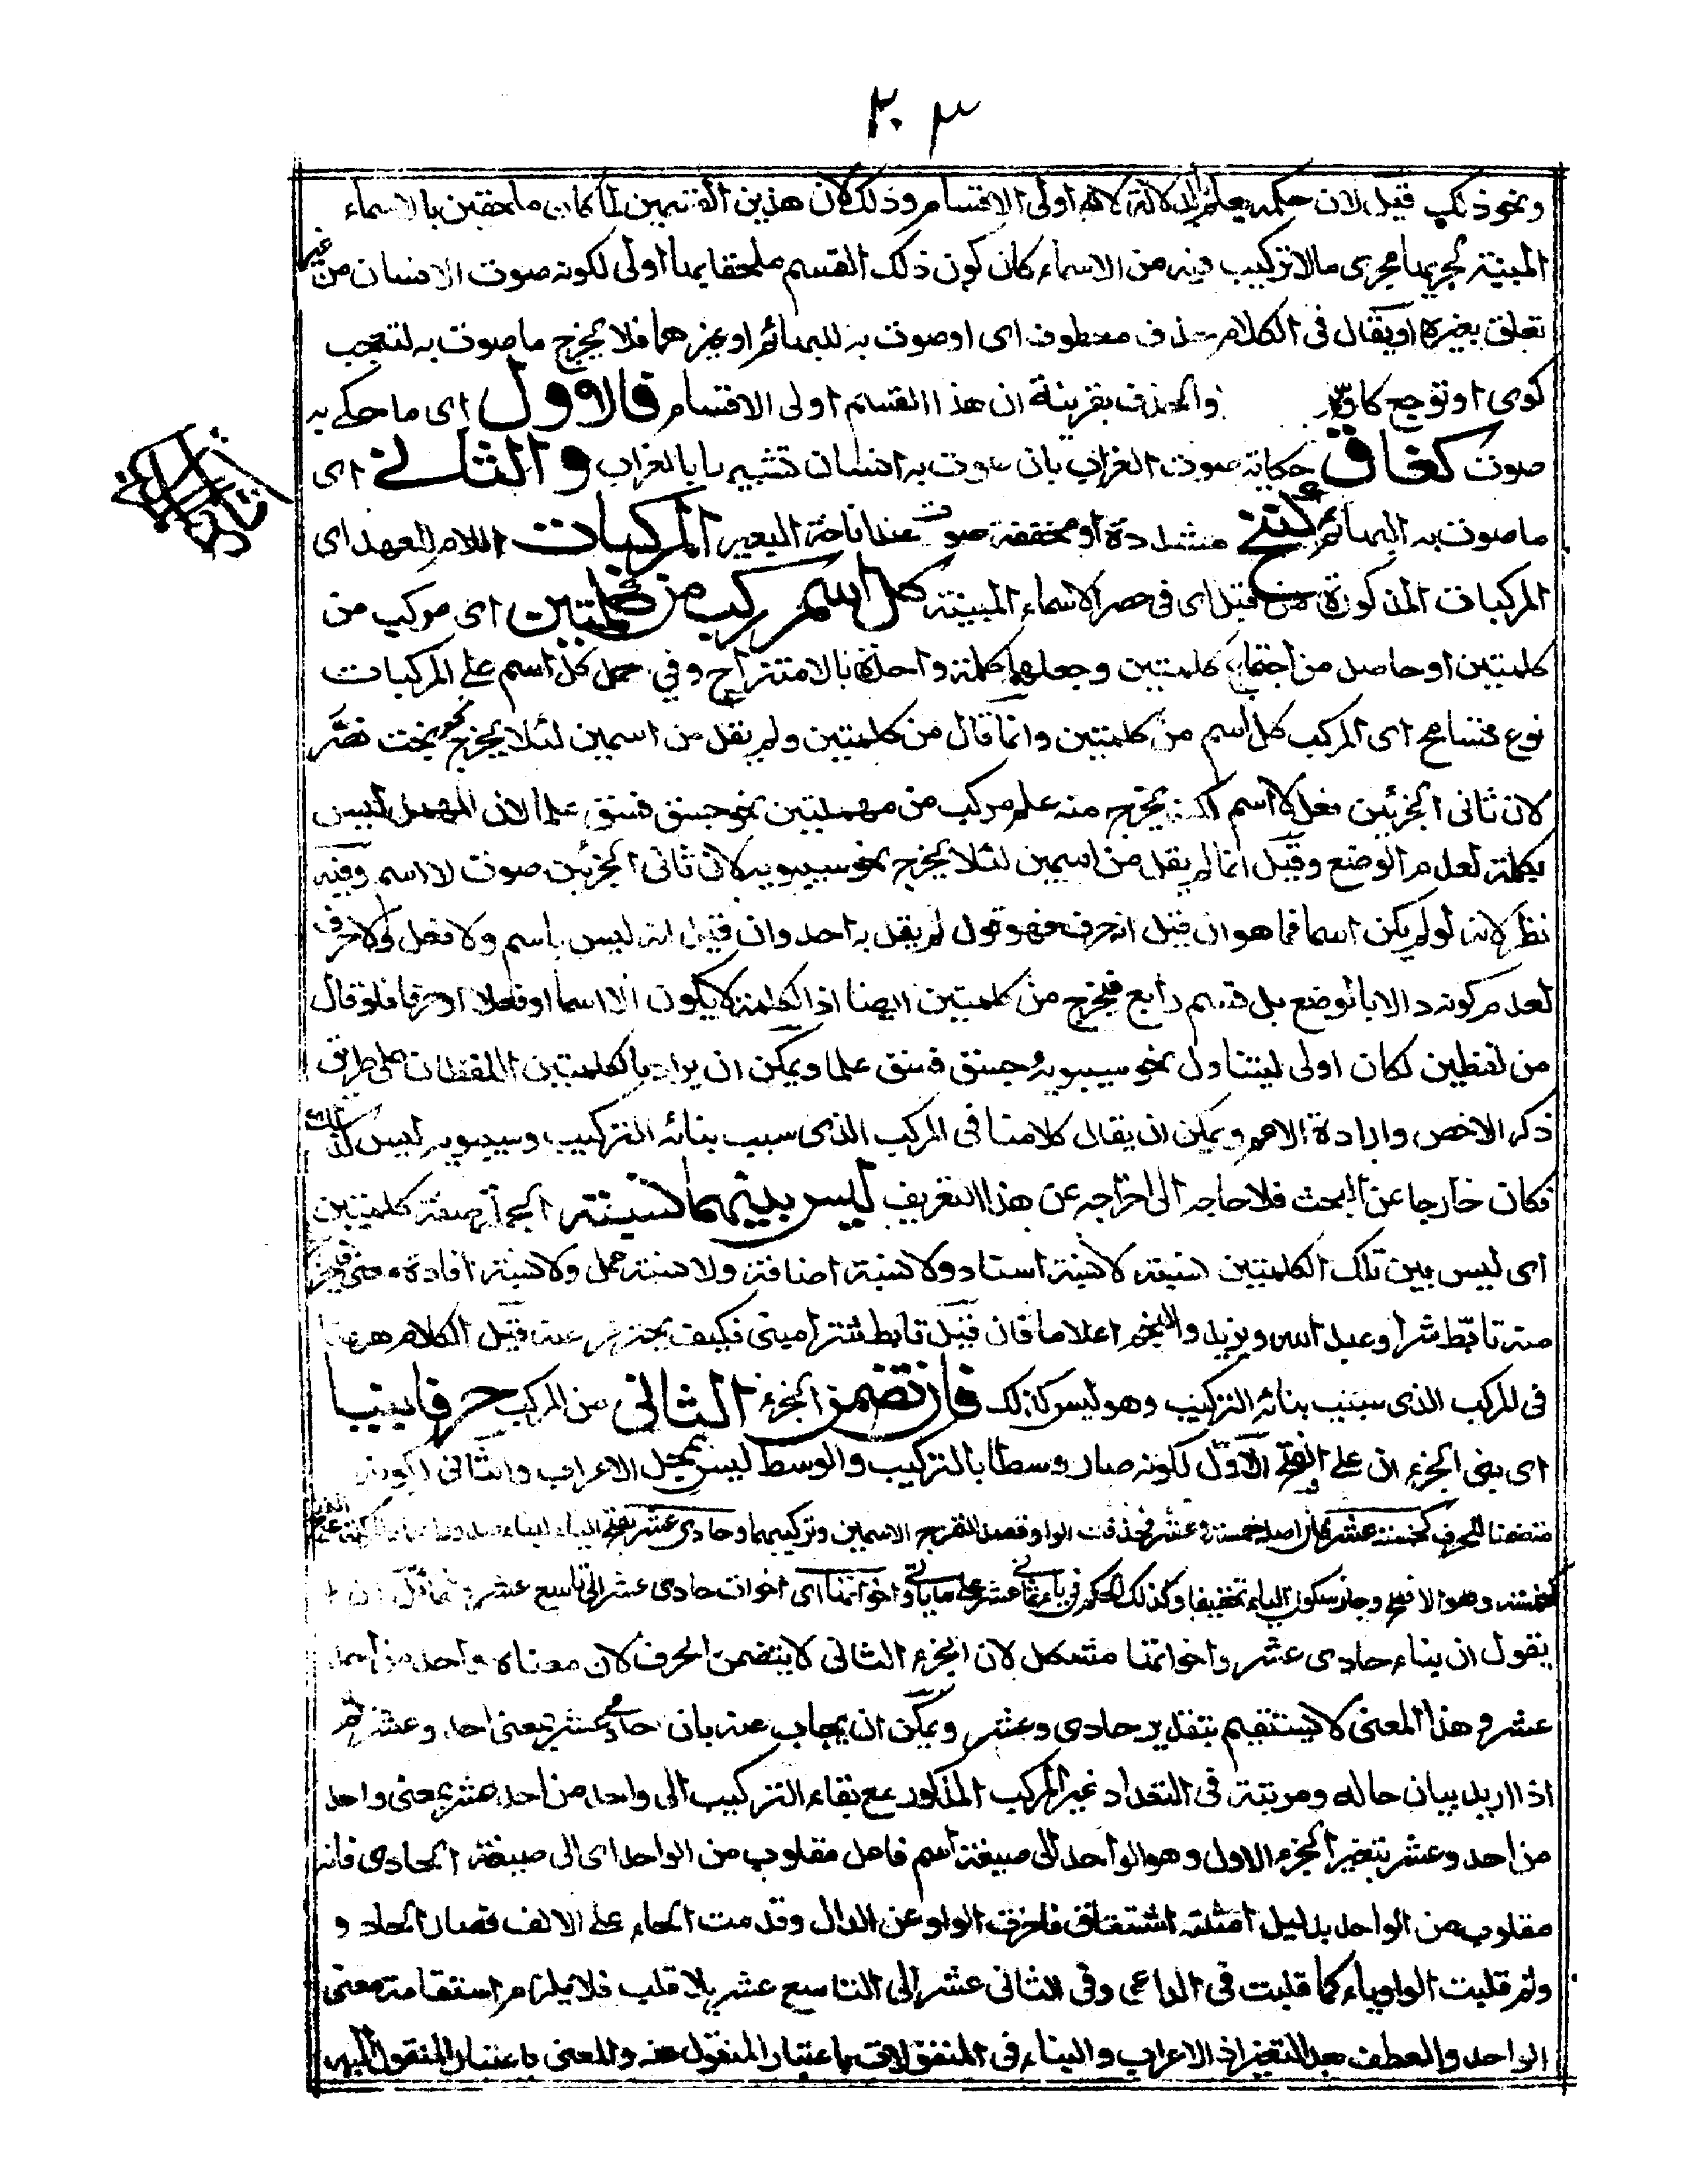 ٣٠٣
ونحو ذلك قيل لان حكمه يعلم بالدلالة لانه اولى الاقسام وذلك لان هذين القسمين لما كانا ملحقين بالاسماء
المبنية لجريهما مجرى مالا تركيب فيه من الاسماء كان كون ذلك القسم ملحقا بها اولى لكونه صوت الانسان من غير
تعلق بغيره او يقال فى الكلام حذف معطوف اى او صوت به للبهائم او غيرهما فلا يخرج ما صوت به لتعجب
كوى او توجع كاوّه والحذف بقرينة ان هذا القسم اولى الاقسام فالاوول اى ما حكى به
صوت كغاق حكاية صوت الغراب بان صوت به انسان تشبيها بالغراب والثانى اى
ما صوت به البهائم كنخ مشددة او مخففة صوت عند اناخة البعير المركبات اللام للعهد اى
المركبات المذكورة من قبل اى فى حصر الاسماء المبنية كل اسم مركب من كلمتين اى مركب من
كلمتين او حاصل من اجتماع كلمتين وجعلهما كلمة واحدة بالامتزاج وفي حمل كل اسم على المركبات
نوع تسامح اى المركب كل اسم من كلمتين وانما قال من كلمتين ولم يقل من اسمين لئلا يخرج نحو بخت نصّر
لان ثانى الجزئين فعل لا اسم لكن يخرج منه علم مركب من مهملتين نحو جسق فسق علما لان المهمل ليس
بكلمة لعدم الوضع وقيل انما لم يقل من اسمين لئلا يخرج نحو سيبويه لان ثانى الجزئين صوت لا اسم وفيه
نظر لانه لو لم يكن اسما فما هو ان قيل انه حرف فهو قول لم يقل به احد وان قيل انه ليس باسم ولا فعل ولا حرف
لعدم كونه دالا بالوضع بل قسم رابع فيخرج من كلمتين ايضا اذ الكلمة لا يكون الا اسما او فعلا او حرفا فلو قال
من لفظين لكان اولى ليتناول نحو سيبويه وجسق فسق علما ويمكن ان يراد بالكلمتين اللفظان على طريق
ذكر الاخص وارادة الاعم ويمكن ان يقال كلامنا فى المركب الذى سبب بنائه التركيب وسيبويه ليس كذلك
فكان خارجا عن البحث فلا حاجه الى اخراجه عن هذا التعريف ليس بينهما نسبة الجملة صفة كلمتين
اى ليس بين تلك الكلمتين نسبة لا نسبة اسناد ولا نسبة اضافة ولا نسبة عمل ولا نسبة افادة معنى فيخرج
منه تابّط شرا وعبد الله وبزيد والنجم اعلاما فان قيل تابط شرا مبنى فكيف يحترز عنه قيل الكلام ههنا
فى المركب الذى سبب بنائه التركيب وهو ليس كذلك فان تضمن الجزء الثانى من المركب حرفا بنيا
اى بنى الجزء ان على الفتح الاول لكونه صار وسطا بالتركيب والوسط ليس محل الاعراب والثانى لكونه
متضمنا للحرف كخمسة عشر فان اصله خمسة وعشر فحذفت الواو قصدا لتمزج الاسمين وتركيبهما وحادى عشر بفتح الياء
كخمسة وهو الافصح وجاز سكون الياء تخفيفا وكذلك الحكم فى ياء ثمانى عشر واخواتها اى اخوات حادى عشر الى تاسع عشر
يقول ان بناء حادى عشر واخواتها مشكل لان الجزء الثانى لا يتضمن الحرف لان معناه واحد من احد
عشر وهذا المعنى لا يستقيم بتقدير حادى وعشر ويمكن ان يجاب عنه بان حادى عشر بمعنى احد وعشر ثم
اذا اريد بيان حاله ومرتبة فى التعداد غير المركب المذكور مع بقاء التركيب الى واحد من احد عشر بمعنى واحد
من احد وعشر بتغير الجزء الاول وهو الواحد الى صيغة اسم فاعل مقلوب من الواحد اى الى صيغة الحادى فانه
مقلوب من الواحد بدليل امثلة اشتقاق فاخرت الواو عن الدال وقدمت الحاء على الالف فصار الحادو
ثم قلبت الواو ياء كما قلبت فى الداعى وفى الثانى عشر الى التاسع عشر بلا قلب فلا يلزم استقامة معنى
الواحد والعطف بعد التغير اذ الاعراب والبناء فى المنقولات باعتبار المنقول عنه والمعنى باعتبار المنقول اليه